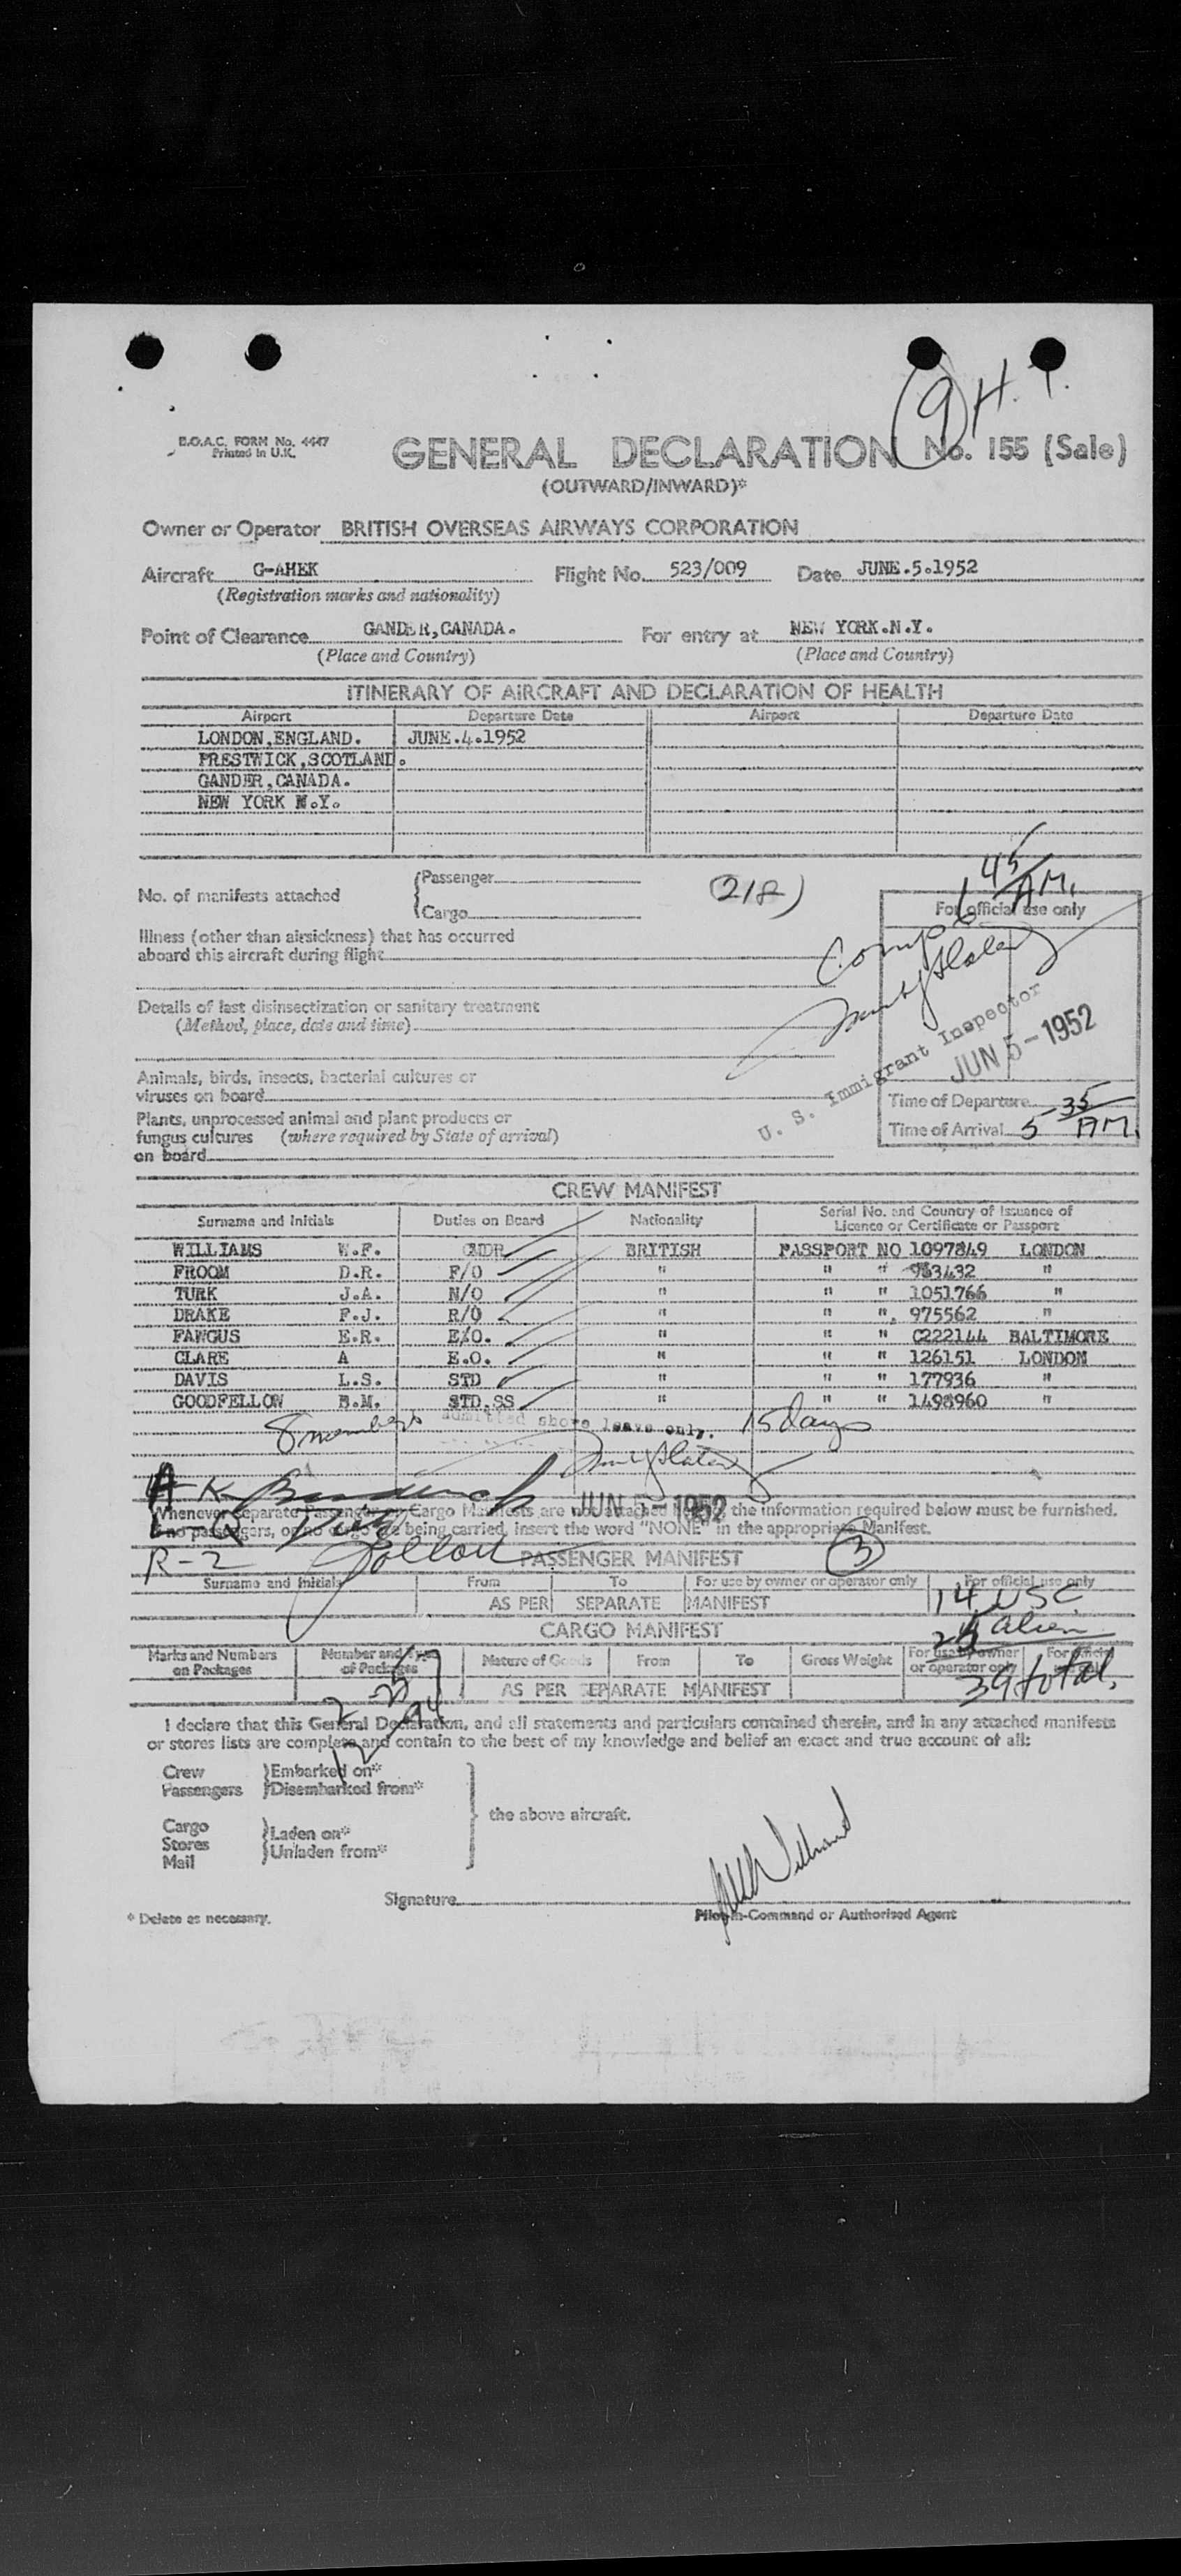 (9) H. T.
B.O.A.C. FORM No. 4447
Printed in U.K.
GENERAL DECLARATION No. 155 (Sale)
(OUTWARD/INWARD)*
Owner or Operator BRITISH OVERSEAS AIRWAYS CORPORATION
Aircraft G-AHEK Flight No. 523/009 Date JUNE.5.1952
(Registration marks and nationality)
Point of Clearance GANDER,CANADA. For entry at NEW YORK.N.Y.
(Place and Country) (Place and Country)
ITINERARY OF AIRCRAFT AND DECLARATION OF HEALTH
Airport Departure Date Airport Departure Date
LONDON,ENGLAND. JUNE.4.1952
PRESTWICK,SCOTLAND.
GANDER,CANADA.
NEW YORK N.Y.
No. of manifests attached
Passenger
Cargo
(218)
6 45 AM.
For official use only
Illness (other than airsickness) that has occurred
aboard this aircraft during flight
Comp
Details of last disinsectization or sanitary treatment
(Method, place, date and time)
U. S. Immigrant Inspector
JUN 5-1952
Animals, birds, insects, bacterial cultures or
viruses on board
Time of Departure
Plants, unprocessed animal and plant products or
fungus cultures (where required by State of arrival)
on board
Time of Arrival 5 35 AM.
CREW MANIFEST
Surname and Initials Duties on Board Nationality Serial No. and Country of Issuance of
Licence or Certificate or Passport
WILLIAMS W.F. CMDR BRITISH PASSPORT NO 1097849 LONDON
FROOM D.R. F/O " " " 963432 "
TURK J.A. N/O " " " 1051766 "
DRAKE F.J. R/O " " " 975562 "
FAWGUS E.R. E/O. " " " C222144 BALTIMORE
CLARE A E.O. " " " 126151 LONDON
DAVIS L.S. STD " " " 177936 "
GOODFELLOW B.M. STD.SS " " " 1498960 "
8 members admitted shore leave only. 15 days
JUN 5-1952
Whenever separate Passenger or Cargo Manifests are not attached the information required below must be furnished.
If no passengers, or no cargo are being carried, insert the word "NONE" in the appropriate Manifest.
R-2
PASSENGER MANIFEST (3)
Surname and Initials From To For use by owner or operator only For official use only
AS PER SEPARATE MANIFEST
14 USC
CARGO MANIFEST
alien
Marks and Numbers
on Packages
Number and Type
of Packages
Nature of Goods From To Gross Weight
For use by owner
or operator only
39 total.
AS PER SEPARATE MANIFEST
I declare that this General Declaration, and all statements and particulars contained therein, and in any attached manifests
or stores lists are complete and contain to the best of my knowledge and belief an exact and true account of all:
Crew
Passengers
Embarked on*
Disembarked from*
the above aircraft.
Cargo
Stores
Mail
Laden on*
Unladen from*
Signature
* Delete as necessary.
Pilot-in-Command or Authorised Agent